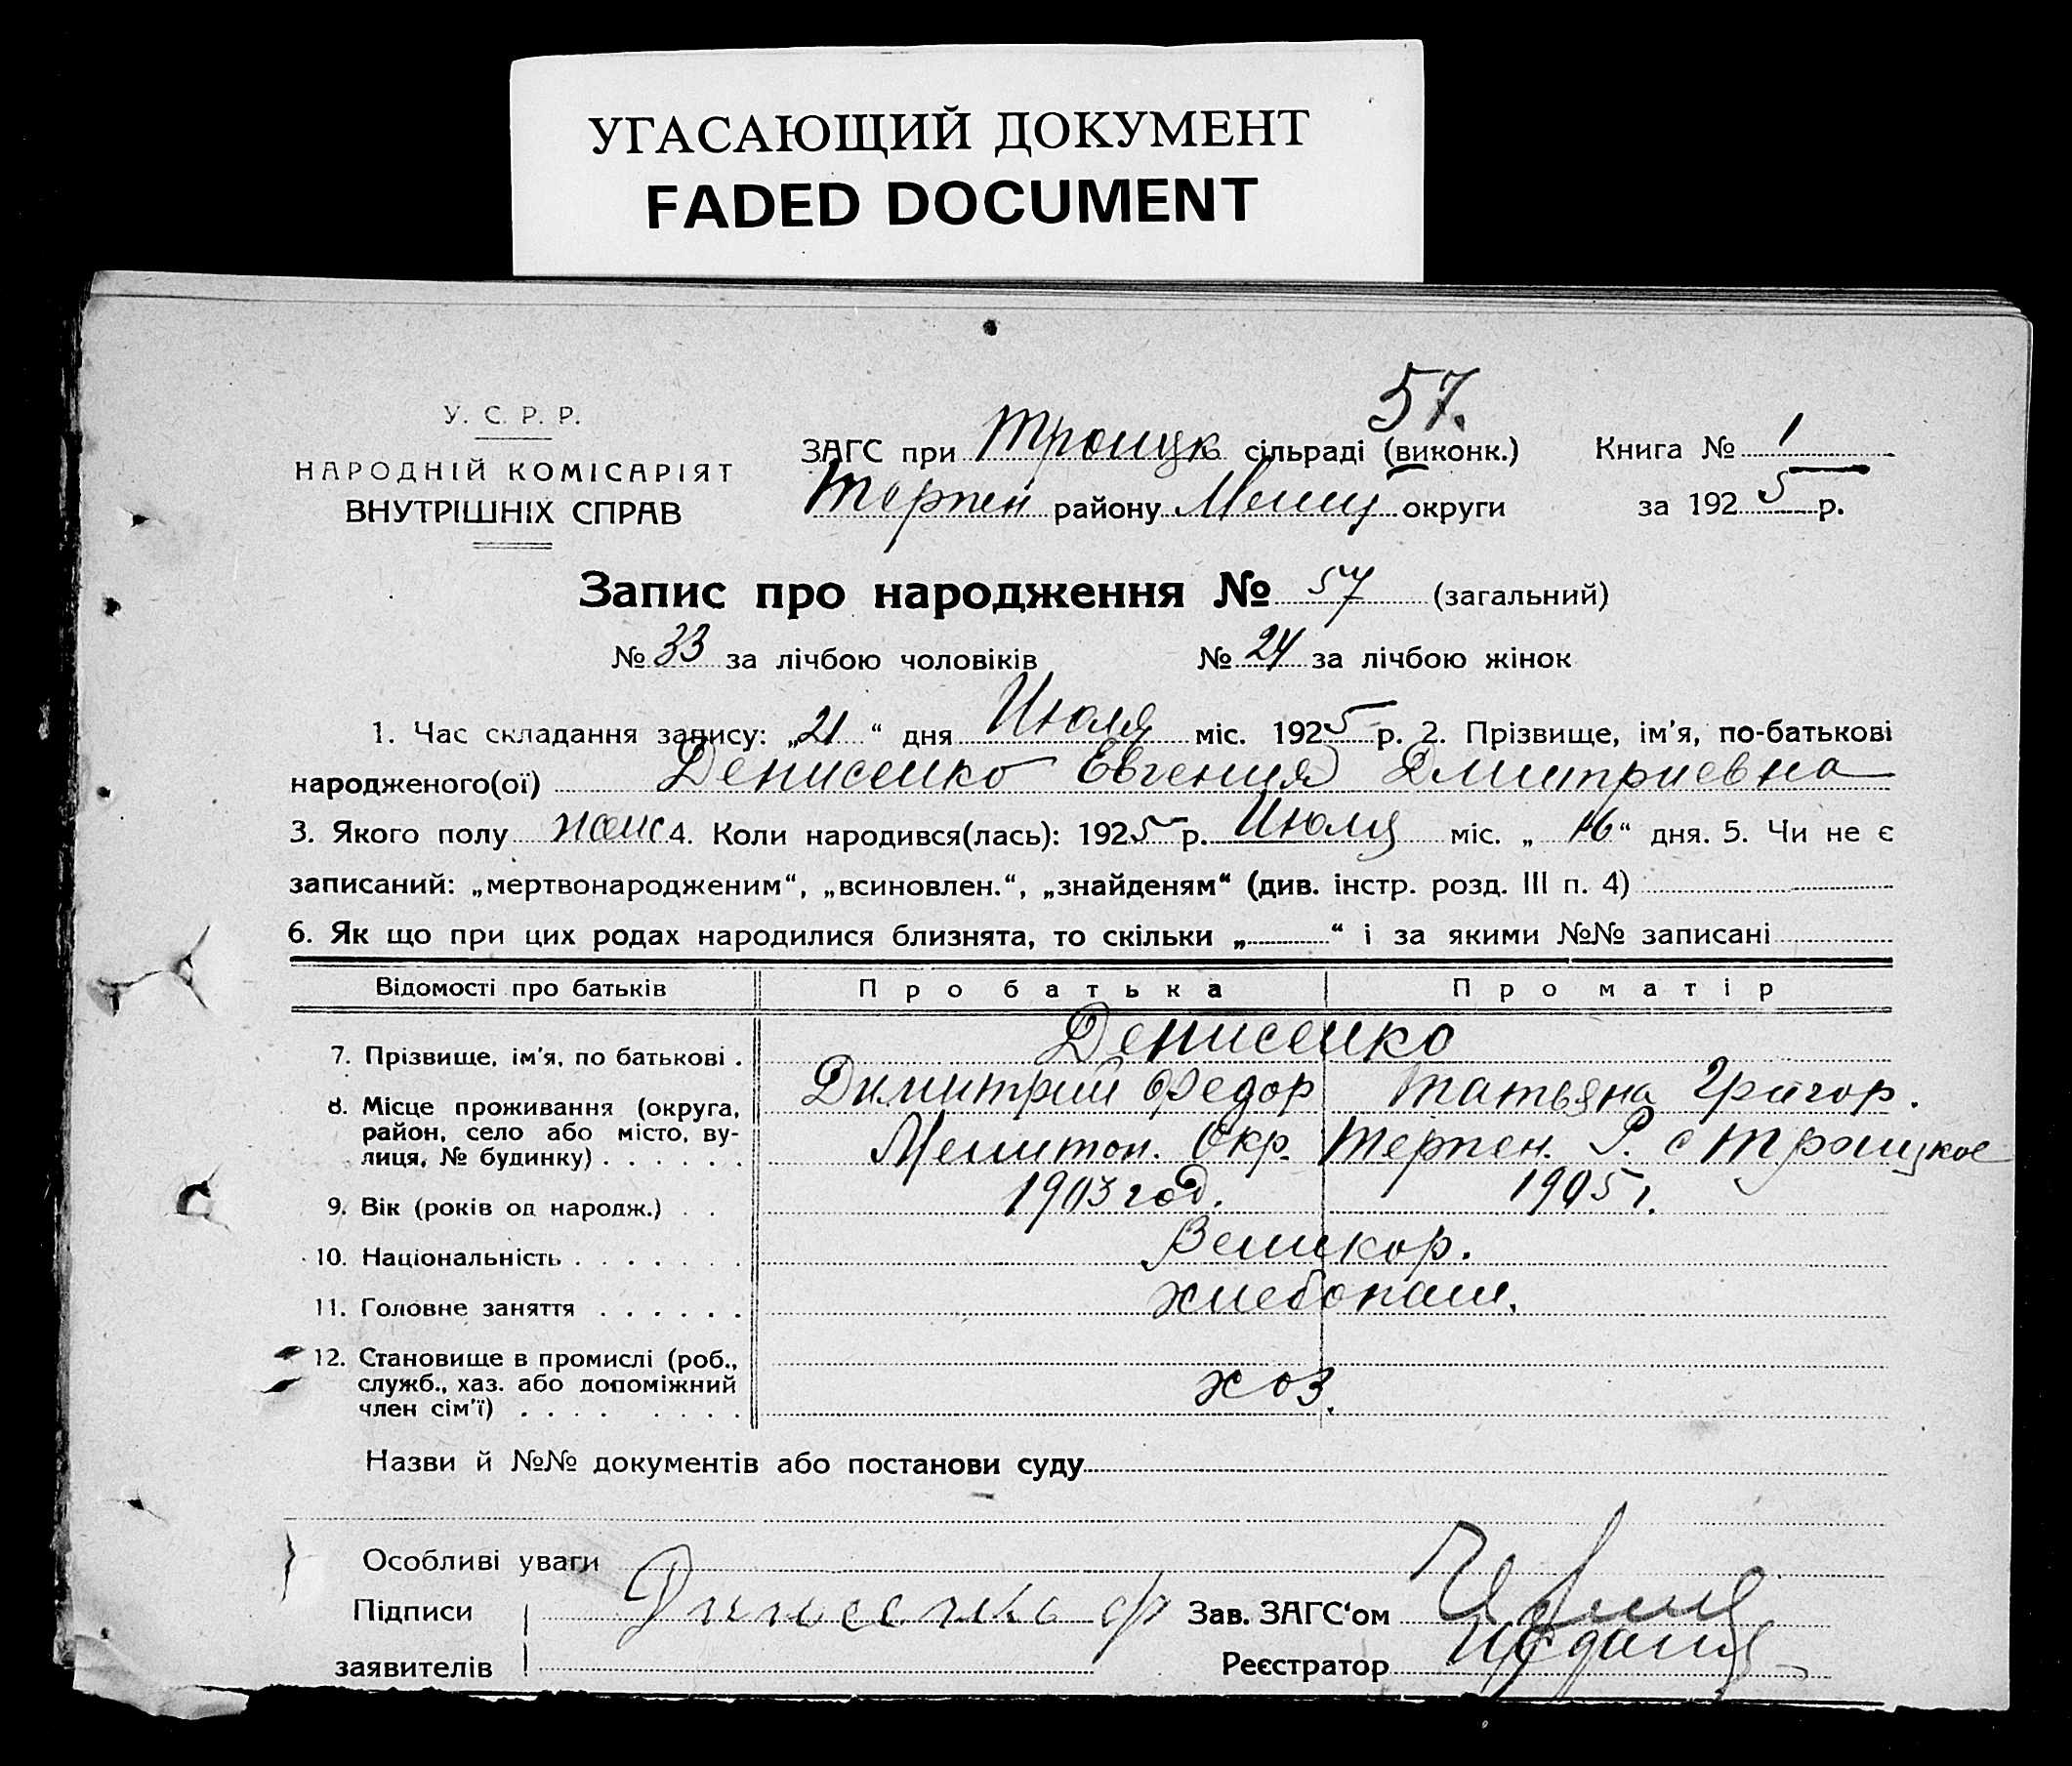 УГАСАЮЩИЙ ДОКУМЕНТ
FADED DOCUMENT
57.
У. С. Р. Р.
НАРОДНІЙ КОМІСАРІЯТ
ВНУТРІШНІХ СПРАВ
ЗАГС при Троицк сільраді (виконк.) Книга № 1
Терпен району Мелит округи за 1925 р.
Запис про народження № 57 (загальний)
№ 33 за лічбою чоловіків № 24 за лічбою жінок
1. Час складання запису: „21“ дня Июля міс. 1925 р. 2. Прізвище, ім'я, по-батькові
народженого(ої) Денисенко Евгения Дмитриевна
3. Якого полу женс 4. Коли народився(лась): 1925 р. Июля міс. „16“ дня. 5. Чи не є
записаний: „мертвонародженим“, „всиновлен.“, „знайденям“ (див. інстр. розд. III п. 4)
6. Як що при цих родах народилися близнята, то скільки „ “ і за якими №№ записані
Відомості про батьків Про батька Про матір
Денисенко
7. Прізвище, ім'я, по батькові .
Димитрий Федор Татьяна Григор.
8. Місце проживання (округа,
район, село або місто, ву-
лиця, № будинку) . . . . . .
Мелитоп. Окр. Терпен. Р. с Троицкое
9. Вік (років од народж.) . . 1903 год. 1905 г.
10. Національність . . . . . . . Великор.
11. Головне заняття . . . . . . хлебопаш.
12. Становище в промислі (роб.,
служб., хаз. або допоміжний
член сім'ї) . . . . . . . . хоз.
Назви й №№ документів або постанови суду
Особливі уваги
Підписи Зав. ЗАГС'ом
заявителів Реєстратор